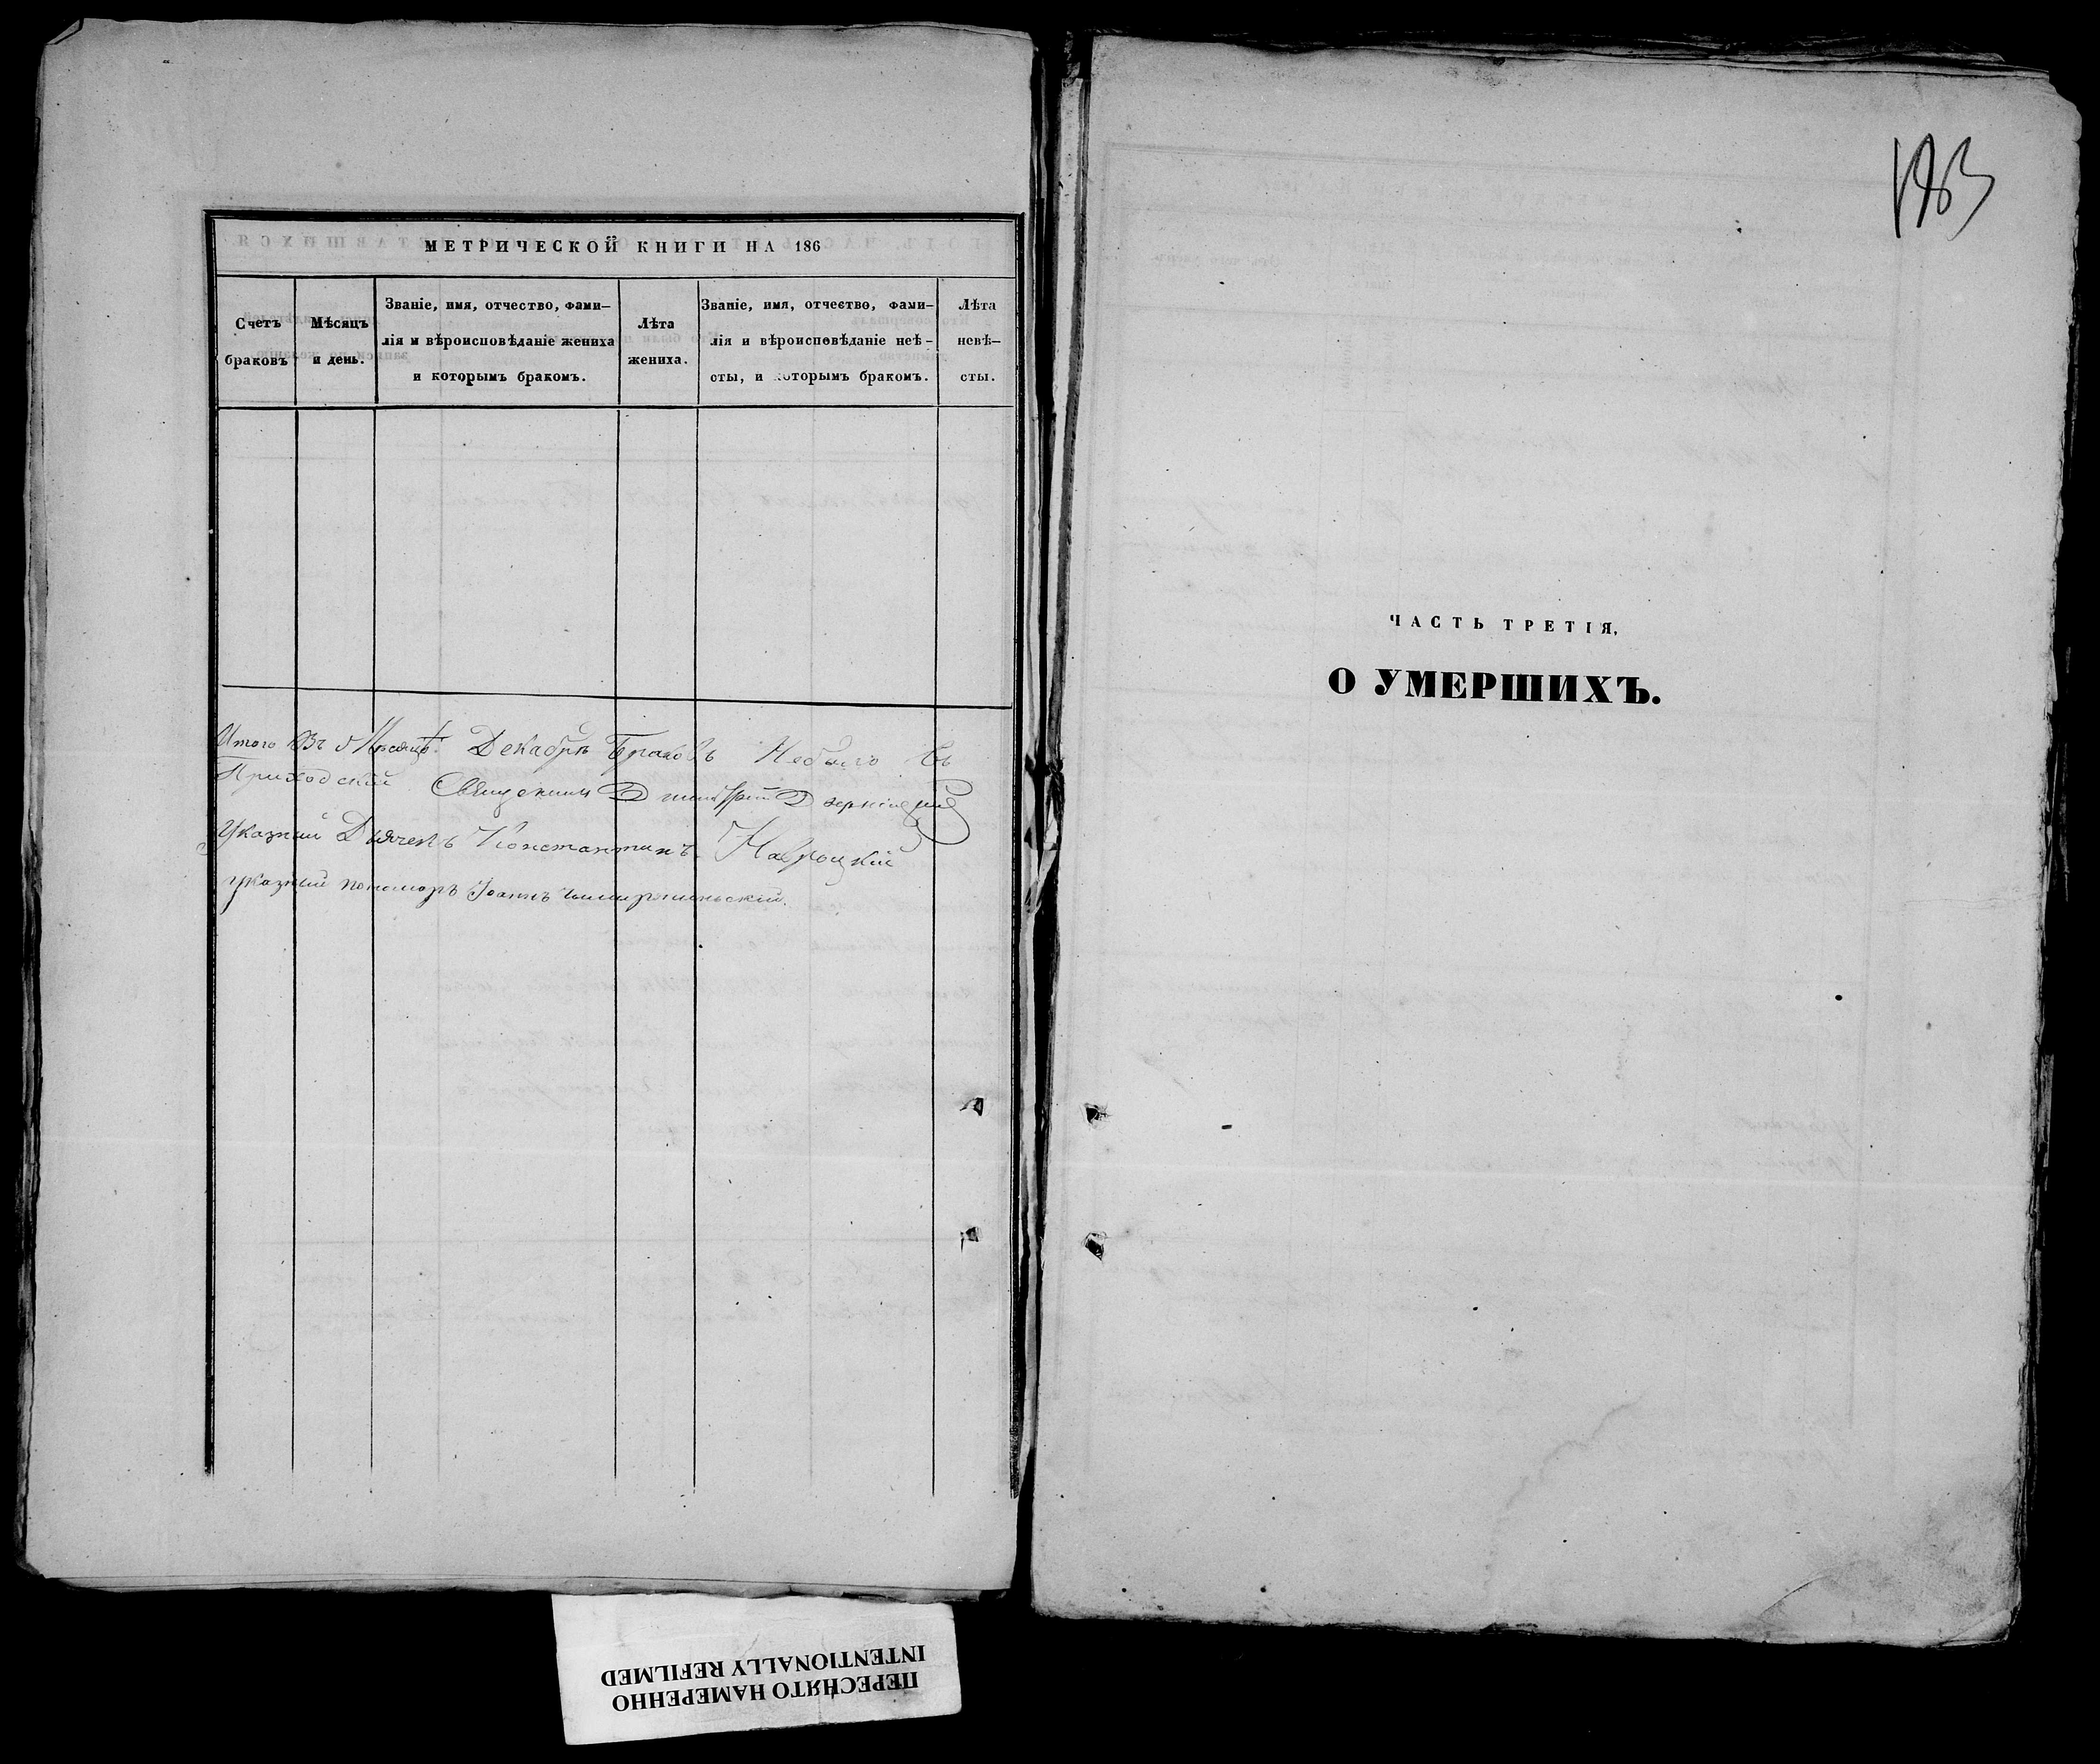 МЕТРИЧЕСКОЙ КНИГИ НА 186
Счетъ
браковъ
Мѣсяцъ
и день.
Званіе, имя, отчество, фами-
лія и вѣроисповѣданіе жениха
и которымъ бракомъ.
Лѣта
жениха.
Званіе, имя, отчество, фами-
лія и вѣроисповѣданіе невѣ-
сты, и которымъ бракомъ.
Лѣта
невѣ-
сты.
Итого Въ Мѣсяцѣ Декабрѣ Браковъ Небыло
Приходскій Священникъ Димитрій
Указный Дьячекъ Константинъ Навроцкій
указный пономарь Іоаннъ
183
ЧАСТЬ ТРЕТІЯ,
О УМЕРШИХЪ.
ПЕРЕСНЯТО НАМЕРЕННО
INTENTIONALLY REFILMED